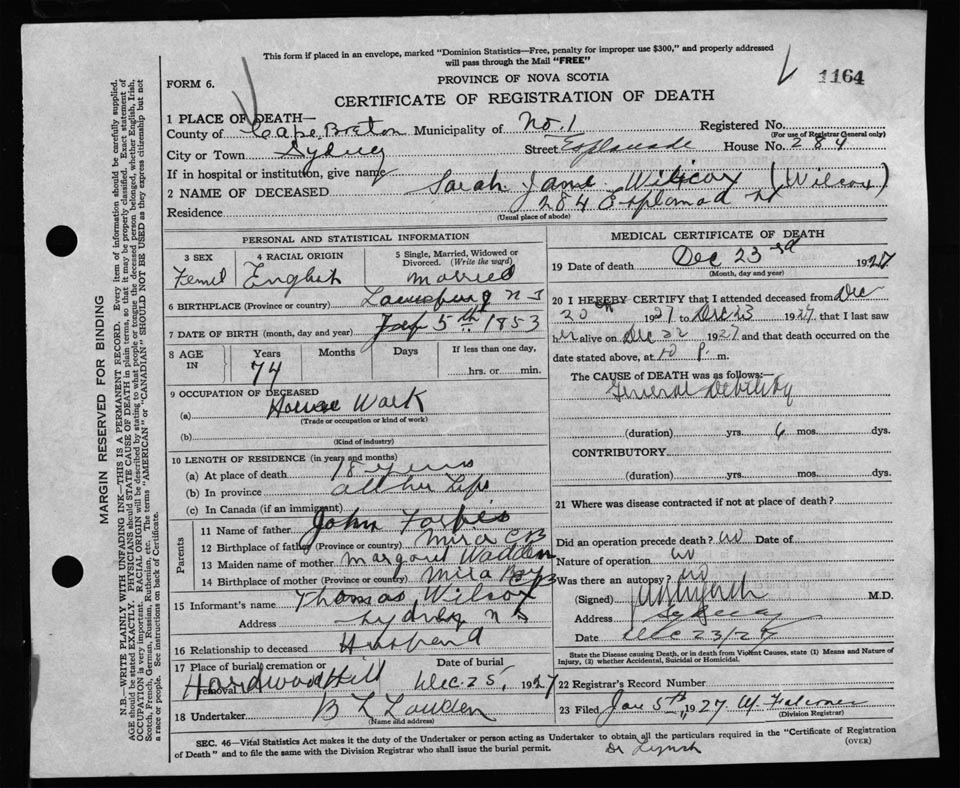 This form if placed in an envelope, marked "Dominion Statistics—Free, penalty for improper use $300," and properly addressed
will pass through the Mail "FREE"
FORM 6.
PROVINCE OF NOVA SCOTIA
1164
CERTIFICATE OF REGISTRATION OF DEATH
1 PLACE OF DEATH—
County of Cape Breton Municipality of No. 1 Registered No.
(For use of Registrar General only)
City or Town Sydney Street Esplanade House No. 284
If in hospital or institution, give name
2 NAME OF DECEASED Sarah Jane Wilcox (Wilcox)
Residence 284 Esplanad
(Usual place of abode)
PERSONAL AND STATISTICAL INFORMATION
3 SEX
Femel
4 RACIAL ORIGIN
English
5 Single, Married, Widowed or
Divorced. (Write the word)
Married
6 BIRTHPLACE (Province or country) Louisburg N S
7 DATE OF BIRTH (month, day and year) 5th 1853
8 AGE
IN
Years
74
Months
Days
If less than one day,
hrs. or min.
9 OCCUPATION OF DECEASED
(a) House Work
(Trade or occupation or kind of work)
(b)
(Kind of industry)
10 LENGTH OF RESIDENCE (in years and months)
(a) At place of death 18 years
(b) In province all her Life
(c) In Canada (if an immigrant)
Parents
11 Name of father John Forbes
12 Birthplace of father (Province or country) Mira C B
13 Maiden name of mother Margaret Wadden
14 Birthplace of mother (Province or country) Mira Bay C B
15 Informant's name Thomas Wilcox
Address Sydney N S
16 Relationship to deceased Husband
17 Place of burial, cremation or
removal Hardwood Hill
Date of burial
Dec. 25, 1927
18 Undertaker B L Louden
(Name and address)
MEDICAL CERTIFICATE OF DEATH
19 Date of death Dec 23rd 1927
(Month, day and year)
20 I HEREBY CERTIFY that I attended deceased from Dec
20th 1927 to Dec 23 1927 that I last saw
her alive on Dec 22 1927 and that death occurred on the
date stated above, at 10 P. m.
The CAUSE of DEATH was as follows:—
General Debility
(duration) yrs. 6 mos. dys.
CONTRIBUTORY
(duration) yrs. mos. dys.
21 Where was disease contracted if not at place of death?
Did an operation precede death? no Date of
Nature of operation no
Was there an autopsy? no
(Signed) Lynch M.D.
Address Sydney
Date Dec 23/27
State the Disease causing Death, or in death from Violent Causes, state (1) Means and Nature of
Injury, (2) whether Accidental, Suicidal or Homicidal.
22 Registrar's Record Number
23 Filed Jan 5th, 1927
(Division Registrar)
SEC. 46—Vital Statistics Act makes it the duty of the Undertaker or person acting as Undertaker to obtain all the particulars required in the "Certificate of Registration
of Death" and to file the same with the Division Registrar who shall issue the burial permit.
(OVER)
Dr Lynch
MARGIN RESERVED FOR BINDING
N.B.—WRITE PLAINLY WITH UNFADING INK—THIS IS A PERMANENT RECORD. Every item of information should be carefully supplied.
AGE should be stated EXACTLY. PHYSICIANS should STATE CAUSE OF DEATH in plain terms, so that it may be properly classified. Exact statement of
OCCUPATION is very important. RACIAL ORIGIN will be described by stating to what people or tongue the deceased person belonged, whether English, Irish,
Scotch, French, German, Russian, Ruthenian, etc. The terms "AMERICAN" or "CANADIAN" SHOULD NOT BE USED as they express citizenship but not
a race or people. See instructions on back of Certificate.